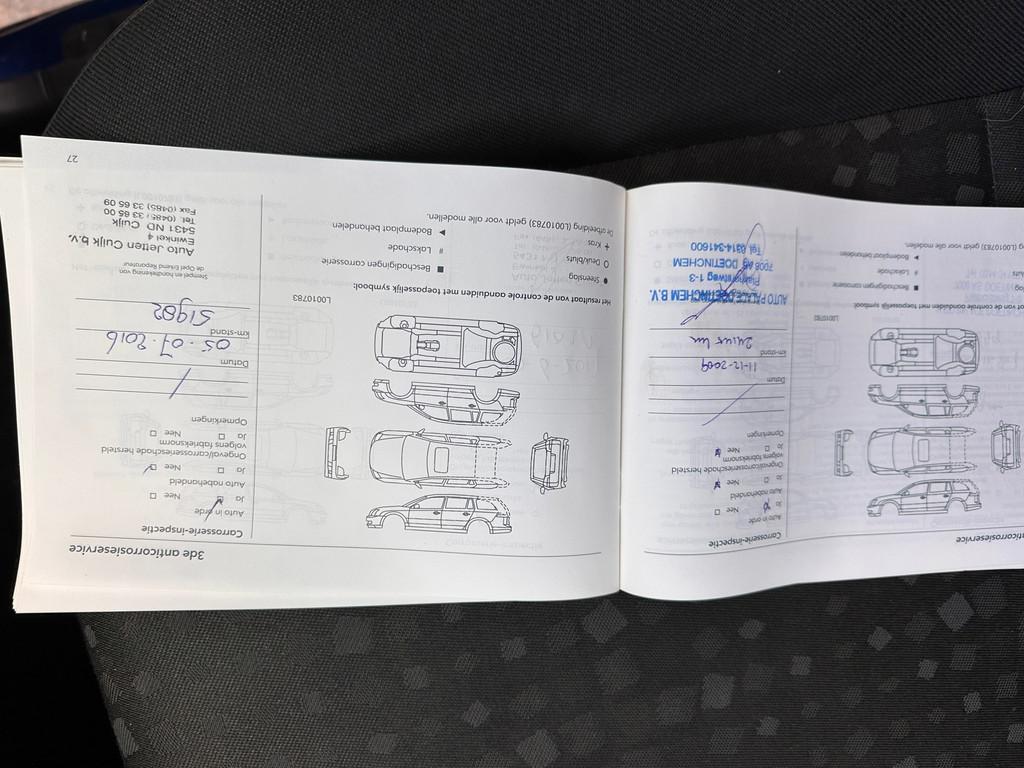 ticorrosieservice
Carrosserie-inspectie
Auto in orde
Ja Nee
Auto nabehandeld
Ja Nee
Ongeval/carrosserieschade hersteld
volgens fabrieksnorm
Ja Nee
Opmerkingen
Datum
11-12-2009
km-stand
AUTO PALACE DOETINCHEM B.V.
1-3
DOETINCHEM
Tel. 0314-341600
L0010783
van de controle aanduiden met toepasselijk symbool:
■ Beschadigingen corrosie
# Lakschade
▶ Bodemplaat behandelen
(L0010783) geldt voor alle modellen.
3de anticorrosieservice
Carrosserie-inspectie
Auto in orde
Ja Nee
Auto nabehandeld
Ja Nee
Ongeval/carrosserieschade hersteld
volgens fabrieksnorm
Ja Nee
Opmerkingen
Datum
05-07-2016
km-stand
51982
Stempel en handtekening van
de Opel Erkend Reparateur
Auto Jetten Cuijk b.v.
Ewinkel 4
5431 ND Cuijk
Tel. (0485) 33 65 00
Fax (0485) 33 65 09
L0010783
Het resultaat van de controle aanduiden met toepasselijk symbool:
● Steenslag
O Deuk/buts
+ Kras
■ Beschadigingen corrosie
# Lakschade
▶ Bodemplaat behandelen
De afbeelding (L0010783) geldt voor alle modellen.
27